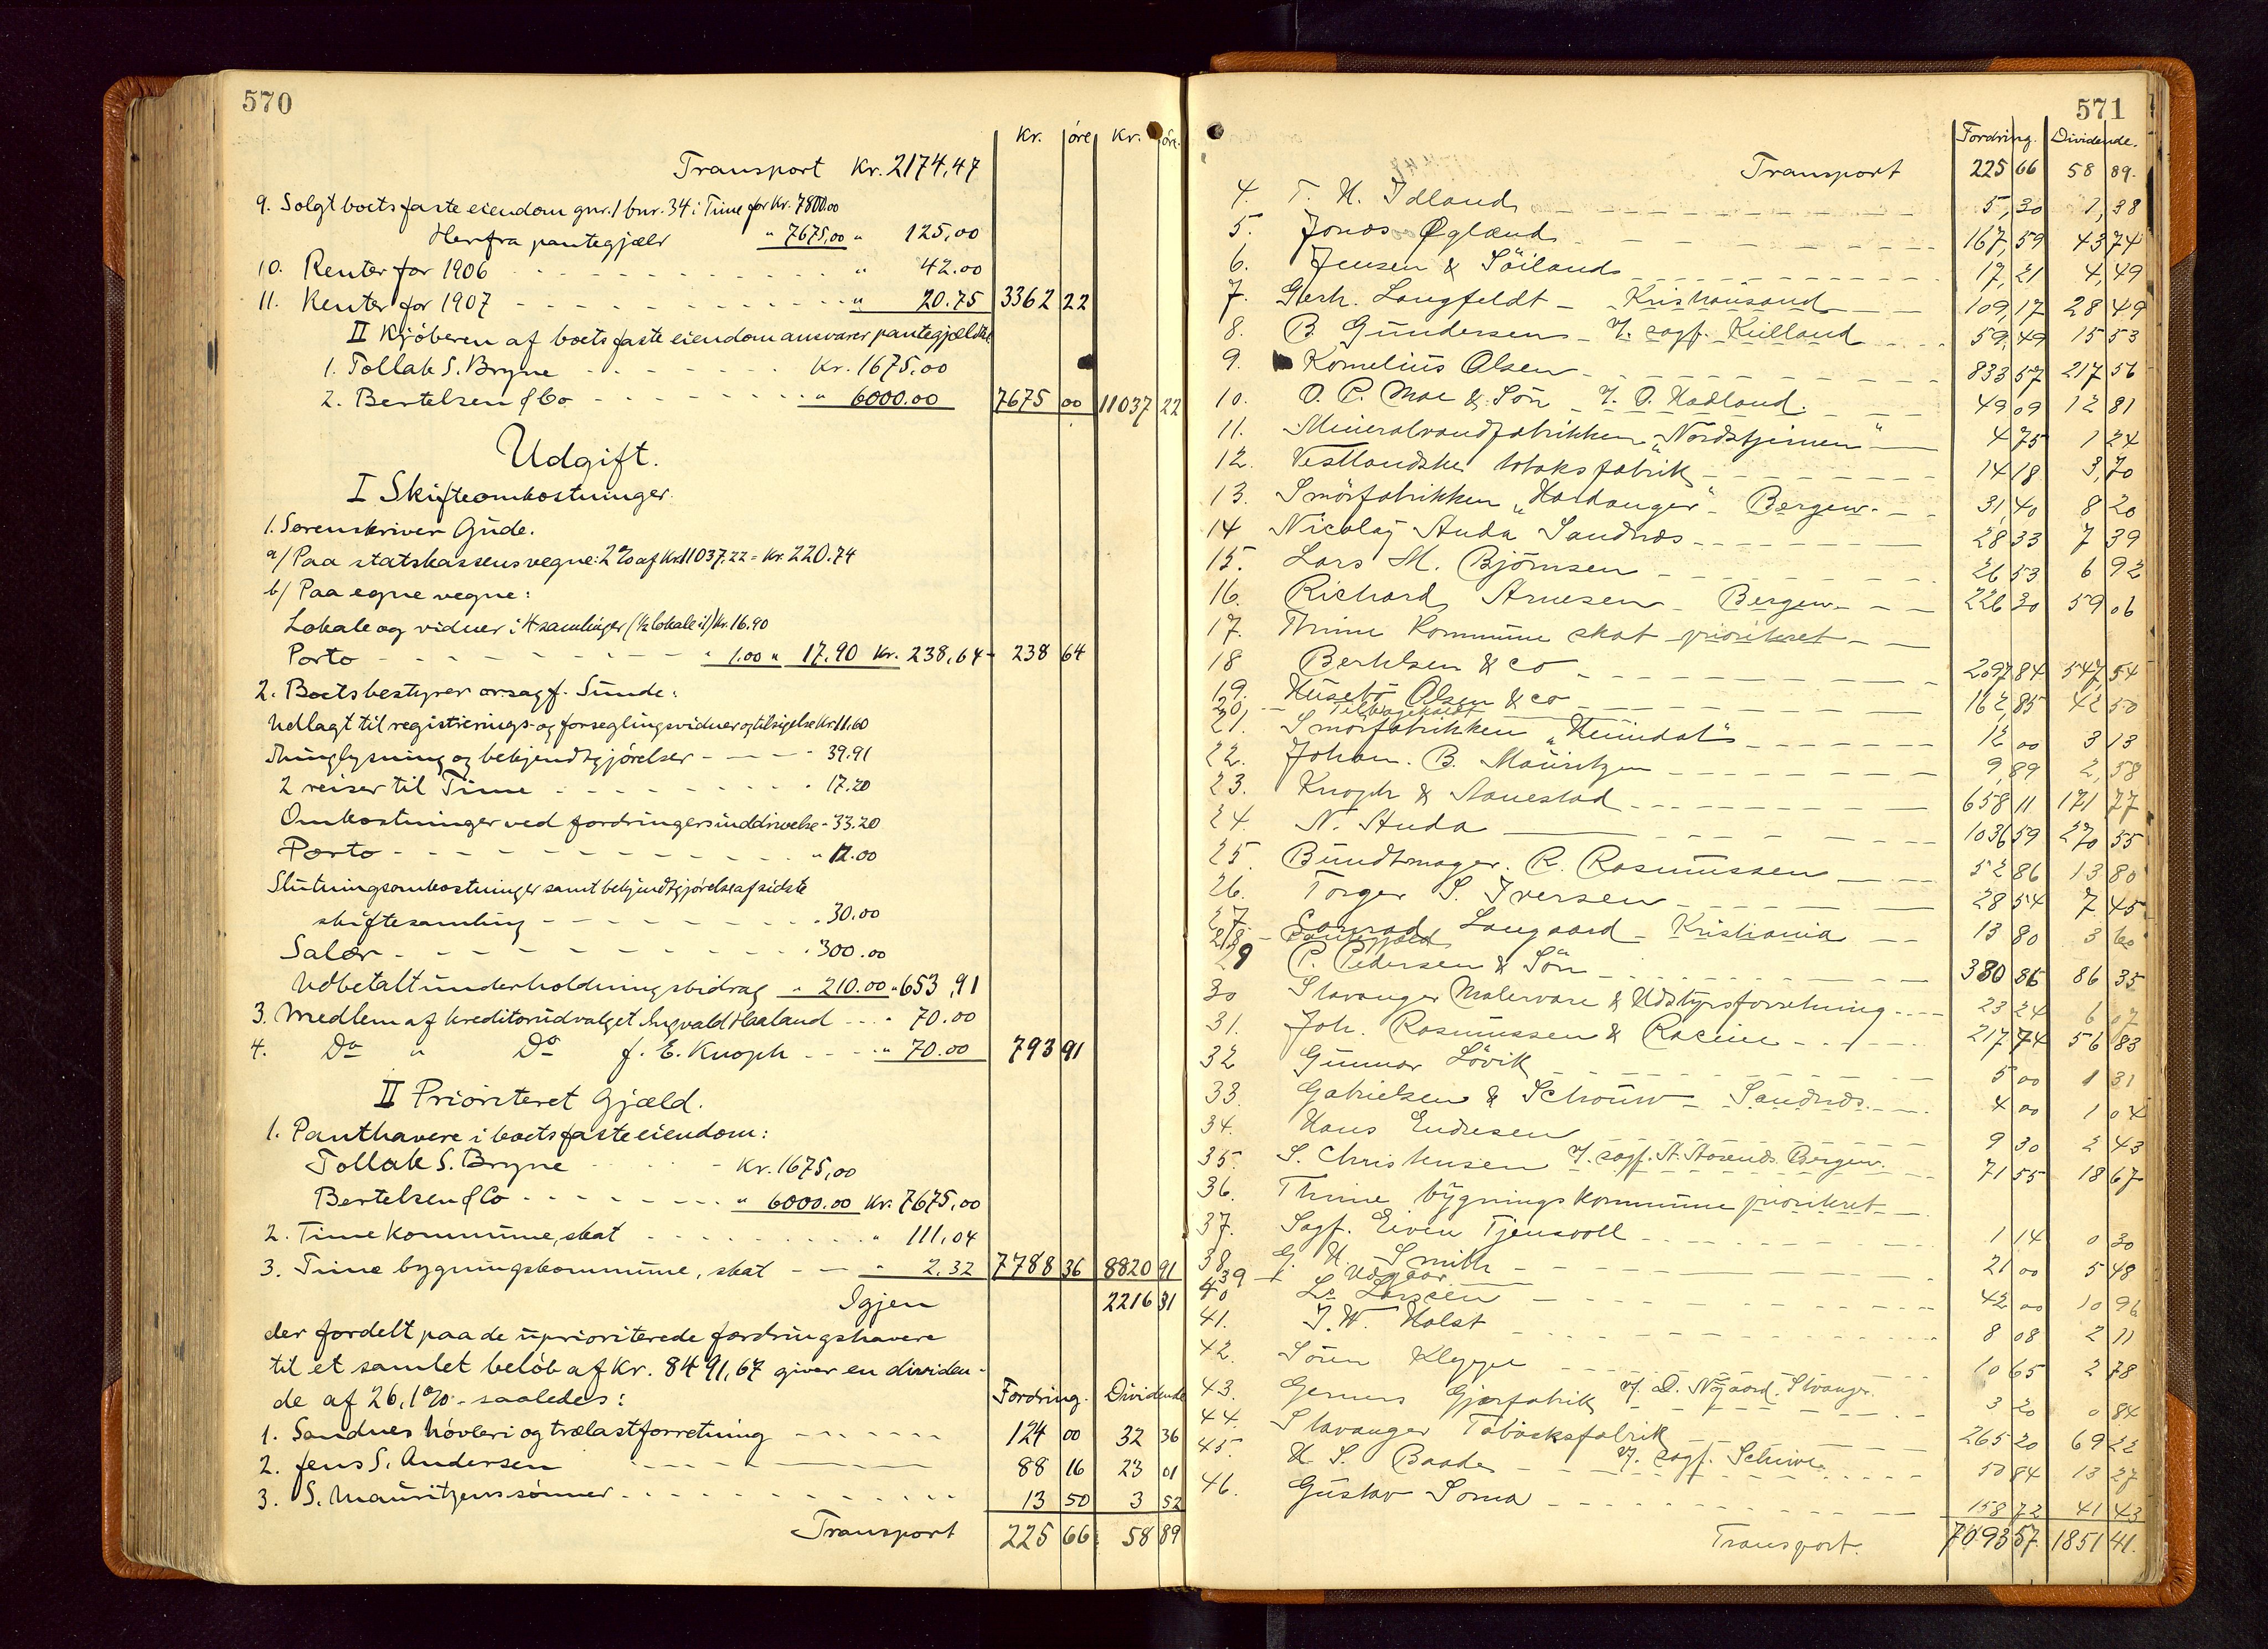 570
Kr. öre Kr. öre.
Transport Kr. 2174,47
9. Solgt boets faste eiendom gnr. 1 bnr. 34 i Time for Kr. 7800.00
Herfra pantegjæld " 7675,00 " 125,00
10. Renter for 1906 - - - " 42.00
11. Renter for 1907 - - - " 20.75 3362 22
II Kjöberen af boets faste eiendom ansvarer pantegjælden
1. Tollak S. Bryne - - - Kr. 1675,00
2. Bertelsen & Co - - - " 6000.00 7675 00 11037 22
Udgift.
I Skifteomkostninger.
1. Sorenskriver Gude.
a/ Paa statskassens vegne: 2% af Kr. 11037.22 = Kr. 220.74
b/ Paa egne vegne:
Lokale og vidner i 4 samlinger (½ lokale i 1) Kr. 16.90
Porto - - - " 1.00 " 17.90 Kr. 238,64 238 64
2. Boets bestyrer o.r.sagf. Sunde:
Udlagt til registrerings- og forseglingsvidner og tilsigelse Kr. 11.60
Thinglysning og bekjendtgjørelser - - - 39.91
2 reiser til Time - - - 17.20
Omkostninger ved fordringers inddrivelse - 33.20
Porto - - - " 12.00
Slutningsomkostninger samt bekjendtgjørelse af sidste
skiftesamling - - - 30.00
Salær - - - 300.00
Udbetalt underholdningsbidrag " 210.00 " 653,91
3. Medlem af kreditorudvalget Ingvald Haaland - - - 70.00
4. Do " Do f. E. Knoph - - - " 70.00 793 91
II Prioriteret Gjæld.
1. Panthavere i boets faste eiendom:
Tollak S. Bryne - Kr. 1675,00
Bertelsen & Co - - - " 6000.00 Kr. 7675,00
2. Time kommune, skat - - - " 111,04
3. Time bygningskommune, skat - - " 2.32 7788 36 8820 91
Igjen 2216 31
der fordelt paa de uprioriterede fordringshavere
til et samlet belöb af Kr. 8491,67 giver en dividen-
de af 26,1% - saaledes: Fordring. Dividende
1. Sandnes hövleri og trælastforretning - - - 124 00 32 36
2. Jens S. Andersen - - - 88 16 23 01
3. S. Mauritzens sönner - - - 13 50 3 52
Transport 225 66 58 89
571
Fordring. Dividende.
Transport 225 66 58 89.
4. T. H. Idland - - - 5,30 1,38
5. Jonas Øgland - - - 167,59 43 74
6. Jensen & Söiland - - - 17,21 4,49
7. Gerh. Langfeldt - Kristiansand - - 109,17 28 49
8. B. Gundersen - V. sagf. Kielland - - 59,49 15 53
9. Kornelius Olsen - - - 833 57 217 56
10. O. P. Moe & Sön - V. O. Hadland. - - 49 09 12 81
11. Mineralvandfabrikken "Nordstjernen" - 4 75 1 24
12. Vestlandske tobaksfabrik - - - 14 18 3,70
13. Smörfabrikken "Hardanger" - Bergen. - - 31,40 8 20
14 Nicolaj Auda Sandnæs - - - 28 33 7 39
15. Lars M. Björnsen - - - 26 53 6 92
16. Richard Arnesen - Bergen. - - 226 30 59 06
17. Thime kommune skat prioriteret - -
18 Bertelsen & Co - - - 2097 84 547 54
19. Husebö Olsen & co - - - 162,85 42 50
20, - Tilbagekaldt
21. Smörfabrikken "Heimdal" - - - 12 00 3 13
22. Johan. B. Mauritzen - - - 9,89 2,58
23. Knoph & Aanestad - - - 658 11 171 77
24. N. Auda - - - 1036 59 270 55
25. Bundtmager. R. Rasmussen - - 52 86 13 80
26. Torger S. Iversen - - - 28 54 7 45
27. Conrad Langaard - Kristiania - - 13 80 3 60
28 - Pantegjæld
29 P. Pedersen & Sön - - - 330 86 86 35
30 Stavanger Malervare & Udstyrsforretning - - - 23 24 6 07
31. Joh. Rasmussen & Racine - - - 217 74 56 83
32 Gunnar Lövik - - - 5 00 1 31
33. Gabrielsen & Schouw - Sandnæs. - - 4 00 1 04
34. Hans Endresen - - - 9 30 2 43
35. S. Christensen V. sagf. A. Aasends. Bergen. - 71 55 18 67
36. Thime bygningskommune prioriteret -
37. Sagf. Eiven Tjensvoll - - - 1 14 0 30
38. G. H. Smith - - - 21 00 5 48
39 - Udgaar.
40 L. Larsen - - - 42 00 10 96
41. J. W. Holst - - - 8 08 2 11
42. Sören Kleppe - - - 10 65 2 78
43. Gerners Gjærfabrik V. O. Nygaard. Stvanger. 3 20 0 84
44. Stavanger Tobaksfabrik - - - 265 20 69 22
45. H. S. Baade - V. sagf. Schiwe - - - 50 84 13 27
46. Gustav Soma - - - 158 72 41 43
Transport. 7093 57. 1851 41.